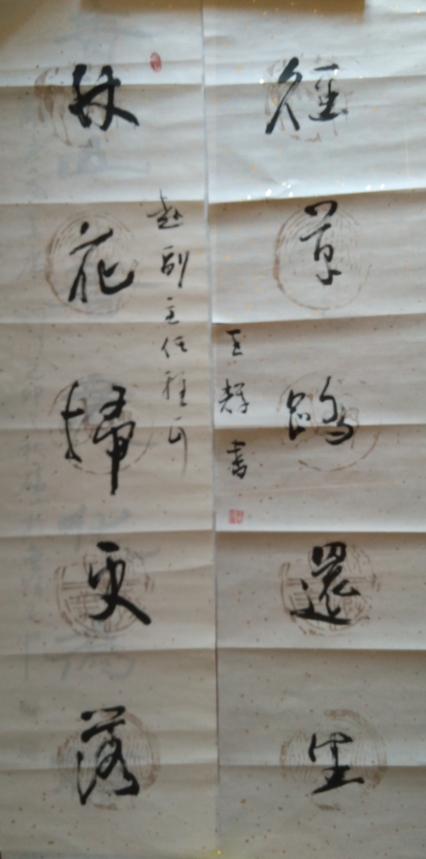 林花掃更落
赵副主任雅正
徑草踏還生
王書